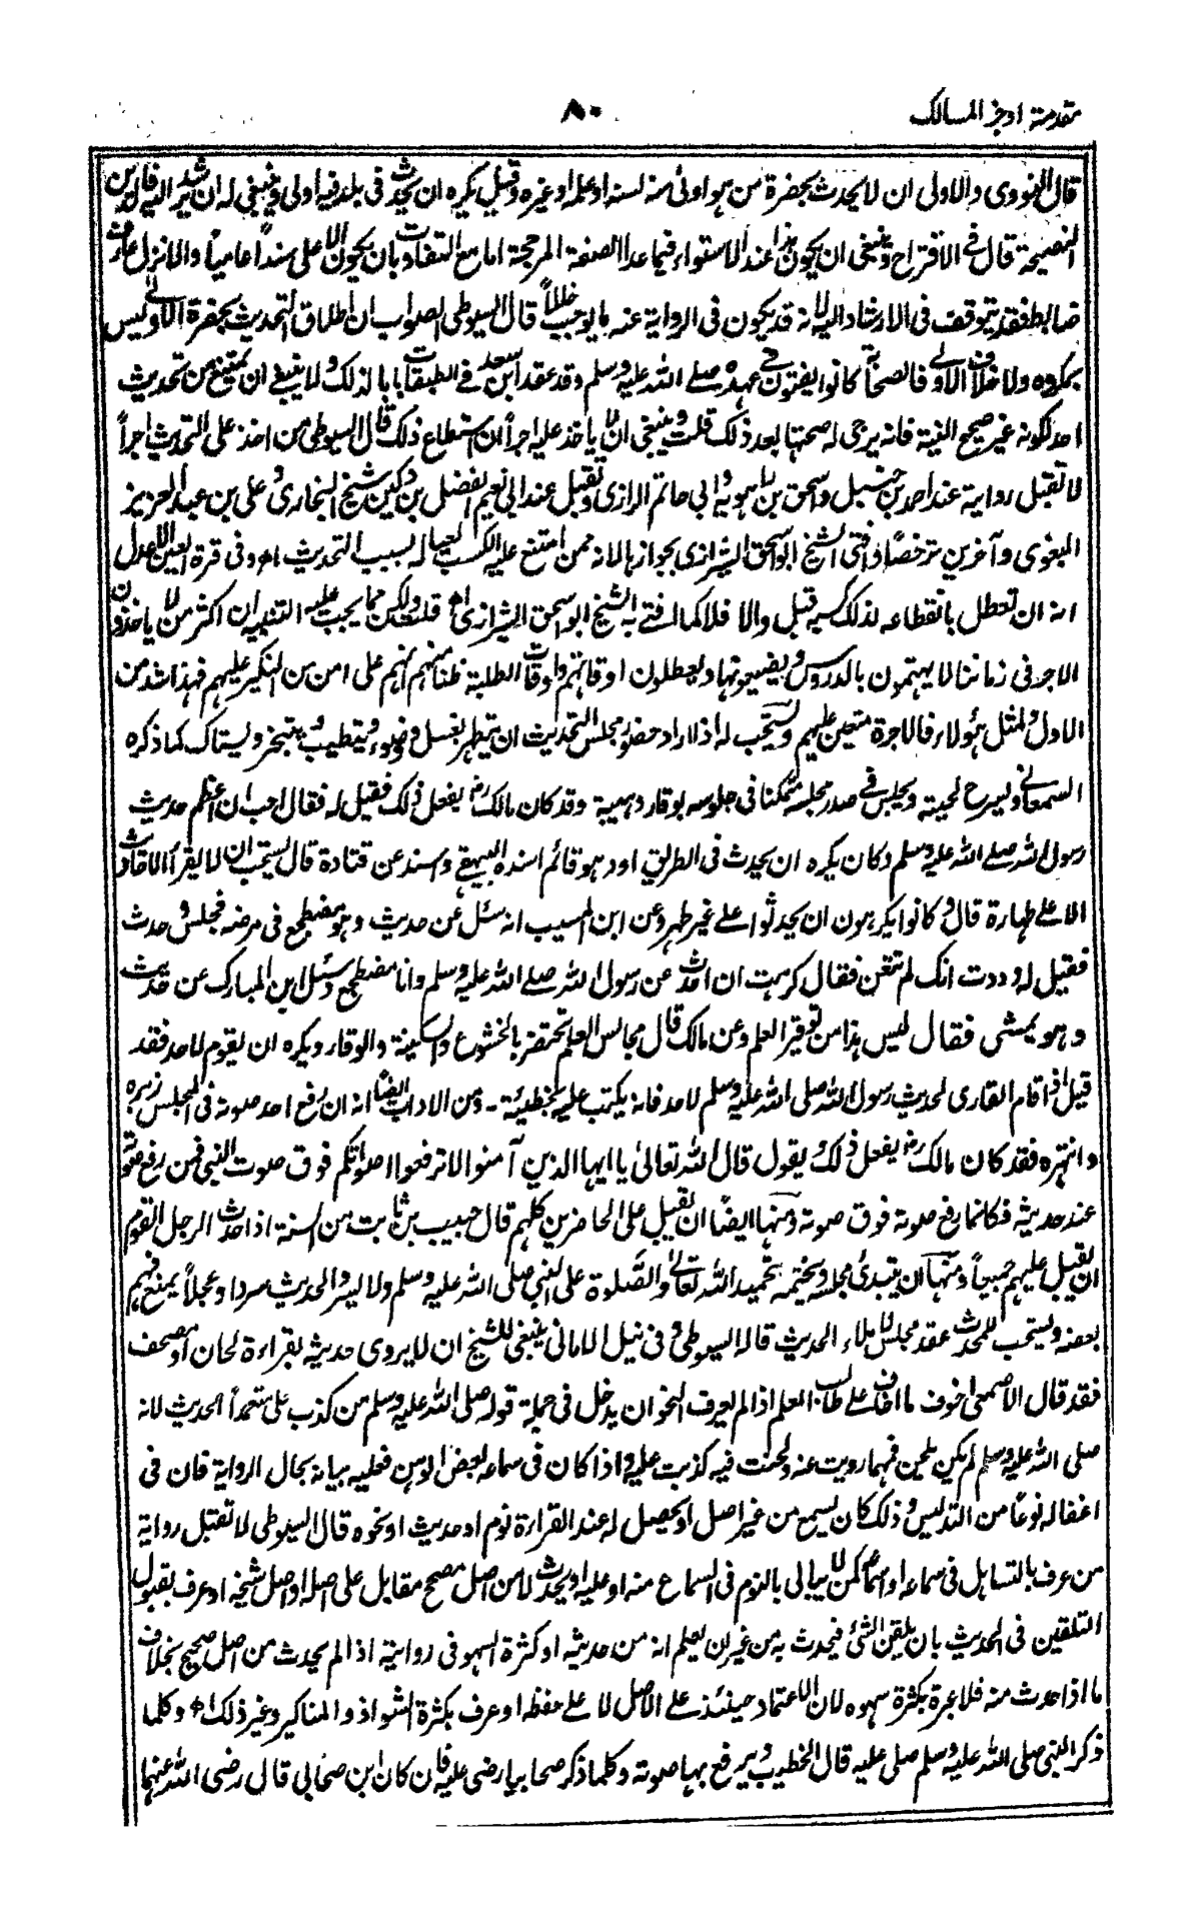 مقدمة اوجز المسالك
٨٠
قال النووى والاولى ان لا يحدث بحضرة من هو اولى منه لسنه او علمه او غيره وقيل يكره ان يحدث فى بلد فيه اولى وينبغى له ان يرشد اليه فالدين
النصيحة قال فى الاقتراح وينبغى ان يكون هذا عند الاستواء فيما عدا الصفة المرجحة اما مع التفاوت بان يكون الاعلى سندا عامياً والانزل عارف
ضابط فقد يتوقف فى الارشاد اليه لانه قد يكون فى الرواية عنه ما يوجب خللاً قال السيوطى الصواب ان اطلاق التحديث بحضرة الاولى ليس
بمكروه ولا خلاف الاولى فالصحابة كانوا يفتون فى عهده صلى الله عليه وسلم وقد عقد ابن سعد فى الطبقات بابا لذلك ولا ينبغى ان يمتنع من تحديث
احد لكونه غير صحيح النية فانه يرجى له صحتها بعد ذلك قلت وينبغى ان لا ياخذ عليه اجراً ان استطاع ذلك قال السيوطى من اخذ على التحديث اجراً
لا تقبل رواية عند احمد بن حنبل واسحق بن راهويه وابى حاتم الرازى وتقبل عند ابى نعيم الفضل بن دكين شيخ البخارى وعلى بن عبد العزيز
البغوى وآخرين ترخصاً اذ افتى الشيخ ابو اسحق الشيرازى بجوازها لانه ممن امتنع عليه الكسب لعياله بسبب التحديث اه وفى قرة العين الاعدل
انه ان تعطل بانقطاعه لذلك كسبه قبل والا فلا كما افتى به الشيخ ابو اسحق الشيرازى اه قلت ولكن مما يجب عليه التنبيه ان اكثر من لا ياخذون
الاجر فى زماننا لا يهتمون بالدروس ويضيعونها ويعطلون اوقاتهم واوقات الطلبة ظنا منهم انهم على امن من النكير عليهم فهذا اشد من
الاول ولمثل هؤلاء فالاجرة متعين عليهم ويستحب له اذا اراد حضور مجلس التحديث ان يتطهر بغسل ووضوء ويتطيب ويتبخر ويستاك كما ذكره
السمعانى ويسرح لحيته ويجلس فى صدر مجلسه متمكنا فى جلوسه بوقار وهيبة وقد كان مالك رض يفعل ذلك فقيل له فقال احب ان اعظم حديث
رسول الله صلى الله عليه وسلم وكان يكره ان يحدث فى الطريق او وهو قائم اسنده البيهقى واسند عن قتادة قال يستحب ان لا يقرأ الاحاديث
الا على طهارة قال وكانوا يكرهون ان يحدثوا على غير طهر وعن ابن المسيب انه سئل عن حديث وهو مضطجع فى مرضه فجلس وحدث
فقيل له وددت انك لم تتعن فقال كرهت ان احدث عن رسول الله صلى الله عليه وسلم وانا مضطجع وسئل ابن المبارك عن حديث
وهو يمشى فقال ليس هذا من توقير العلم وعن مالك قال مجالس العلم تحتضر بالخشوع والسكينة والوقار ويكره ان يقوم لاحد فقد
قيل اذا قام القارى لحديث رسول الله صلى الله عليه وسلم لاحد فانه يكتب عليه خطيئة ـ ومن الاداب ايضاً انه ان رفع احد صوته فى المجلس زبره
وانتهره فقد كان مالك رض يفعل ذلك ويقول قال الله تعالى يا ايها الذين آمنوا لا ترفعوا اصواتكم فوق صوت النبى فمن رفع صوته
عند حديثه فكانما رفع صوته فوق صوته ومنها ايضاً ان يقبل على الحاضرين كلهم قال حبيب بن ثابت من السنة اذا حدث الرجل القوم
ان يقبل عليهم جميعاً ومنها ان يبتدئ مجلسه ويختمه بتحميد الله تعالى والصلوة على النبى صلى الله عليه وسلم ولا يسرد الحديث سردا وعجلاً يمنع فهم
بعضه ويستحب للمحدث عقد مجلس لاملاء الحديث قاله السيوطى وفى نيل الامانى ينبغى للشيخ ان لا يروى حديثه بقراءة لحان او مصحف
فقد قال الاصمعى اخوف ما اخاف على طالب العلم اذا لم يعرف النحو ان يدخل فى جملة قوله صلى الله عليه وسلم من كذب على متعمداً الحديث لانه
صلى الله عليه وسلم لم يكن يلحن فمهما رويت عنه ولحنت فيه كذبت عليه واذا كان فى سماعه لبعض الوهن فعليه بيانه بحال الرواية فان فى
اغفاله نوعاً من التدليس وذلك كان يسمع من غير اصل او يحصل له عند القراءة نوم او حديث او نحوه قال السيوطى لا تقبل رواية
من عرف بالتساهل فى سماعه او اسماعه كمن لا يبالى بالنوم فى السماع منه او عليه او يحدث لا من اصل مصحح مقابل على اصله او اصل شيخه او عرف بقبول
التلقين فى الحديث بان يلقن الشئ فيحدث به من غير ان يعلم انه من حديثه او كثرة السهو فى روايته اذا لم يحدث من اصل صحيح بخلاف
ما اذا حدث منه فلا عبرة بكثرة سهوه لان الاعتماد حينئذ على الاصل لا على حفظه او عرف بكثرة الشواذ والمناكير وغير ذلك اه وكلما
ذكر النبى صلى الله عليه وسلم صلى عليه قال الخطيب ويرفع بها صوته وكلما ذكر صحابيا رضى عليه فان كان ابن صحابى قال رضى الله عنهما